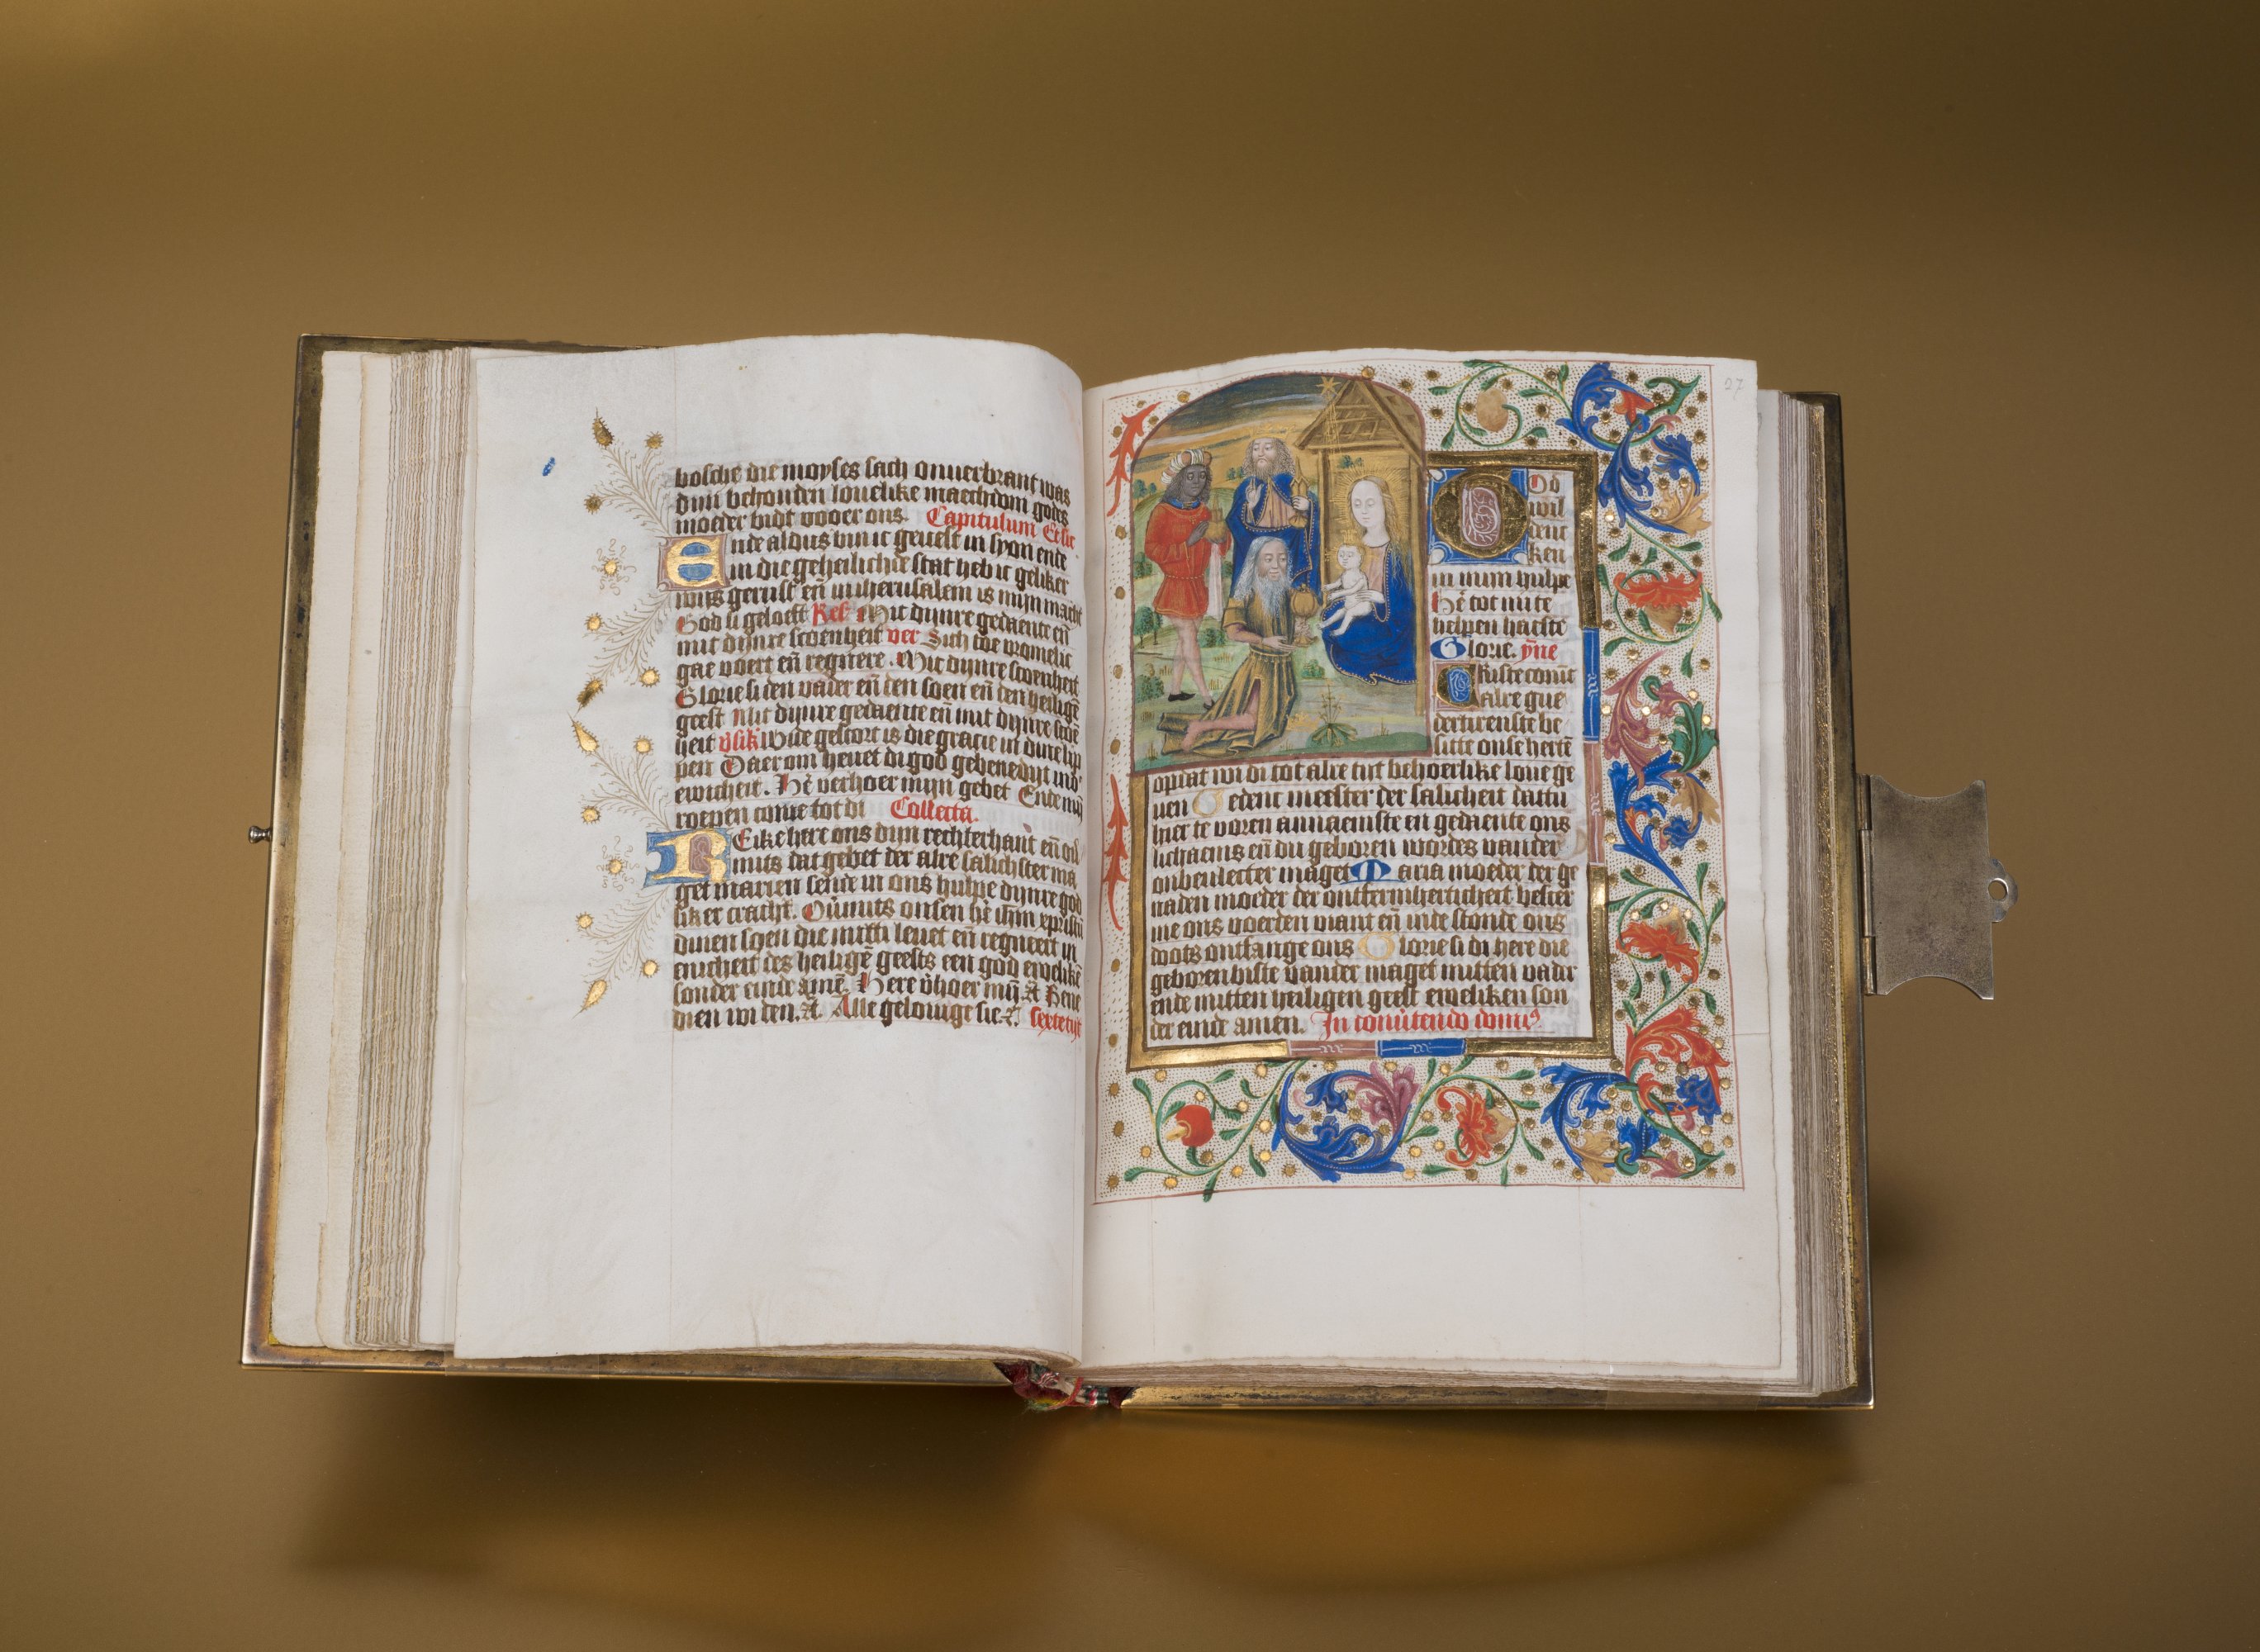 bosche die moyses sach onuerbrant was
dinn behouden louelike maechdom godes
moeder bidt vooer ons. Capitulum Et sic
Ende aldus bin ic geuest in syon ende
in die geheilichde stat heb ic geliker
wijs gerust en̄ in iherusalem is mijn macht
God si geloeft Res Mit dijnre gedaente en̄
mit dijnre scoenheit ver Sich toe vromelic
gae voert en̄ regnere. Mit dijnre scoenheit
Glorie si den vader en̄ den soen en̄ den heilige̅
geest Mit dijnre gedaente en̄ mit dijnre scoe̅
heit v̾sik Wide gestort is die gracie in dine lip
pen Daer om heuet di god gebenedijt in d'
ewicheit. He̅ verhoer mijn gebet Ende mij̅
roepen come tot di Collecta.
Reike here ons dijn rechterhant en̄ ou'
mits dat gebet der alre salichster ma
get marien sende in ons hulpe dijnre god
liker cracht. Ou̾mits onsen he̅ ih̅m xp̅ristu̅
dinen soen die mitti leuet en̄ regneert in
enicheit des heilige̅ geests een god ewelike̅
sonder einde ame̅. Here v̾hoer mij̅ ꝛc Bene
dien wi den. ꝛc. Alle gelouige sie. ꝛc. sexte tijt
27
God
wil
denc
ken
in mijn hulpe
He̅ tot mi te
helpen haeste
Glorie. ÿne
Criste comt
alre gue
dertirenste be
sitte onse herte̅
opdat wi di tot alre tijt behoerlike loue ge
uen Gedenc meester der salicheit dattu
hier te voren annaemste en gedaente ons
lichaems en̄ du geboren wordes van der
onbeulecter maget Maria moeder der ge
naden moeder der ontfermherticheit bescer
me ons voerden viant en̄ inde stonde ons
doots ontfange ons Glorie si di here die
geboren biste vander maget mitten vader
ende mitten heiligen geest eweliken son
der einde amen. In conu̾tendo domi⁹